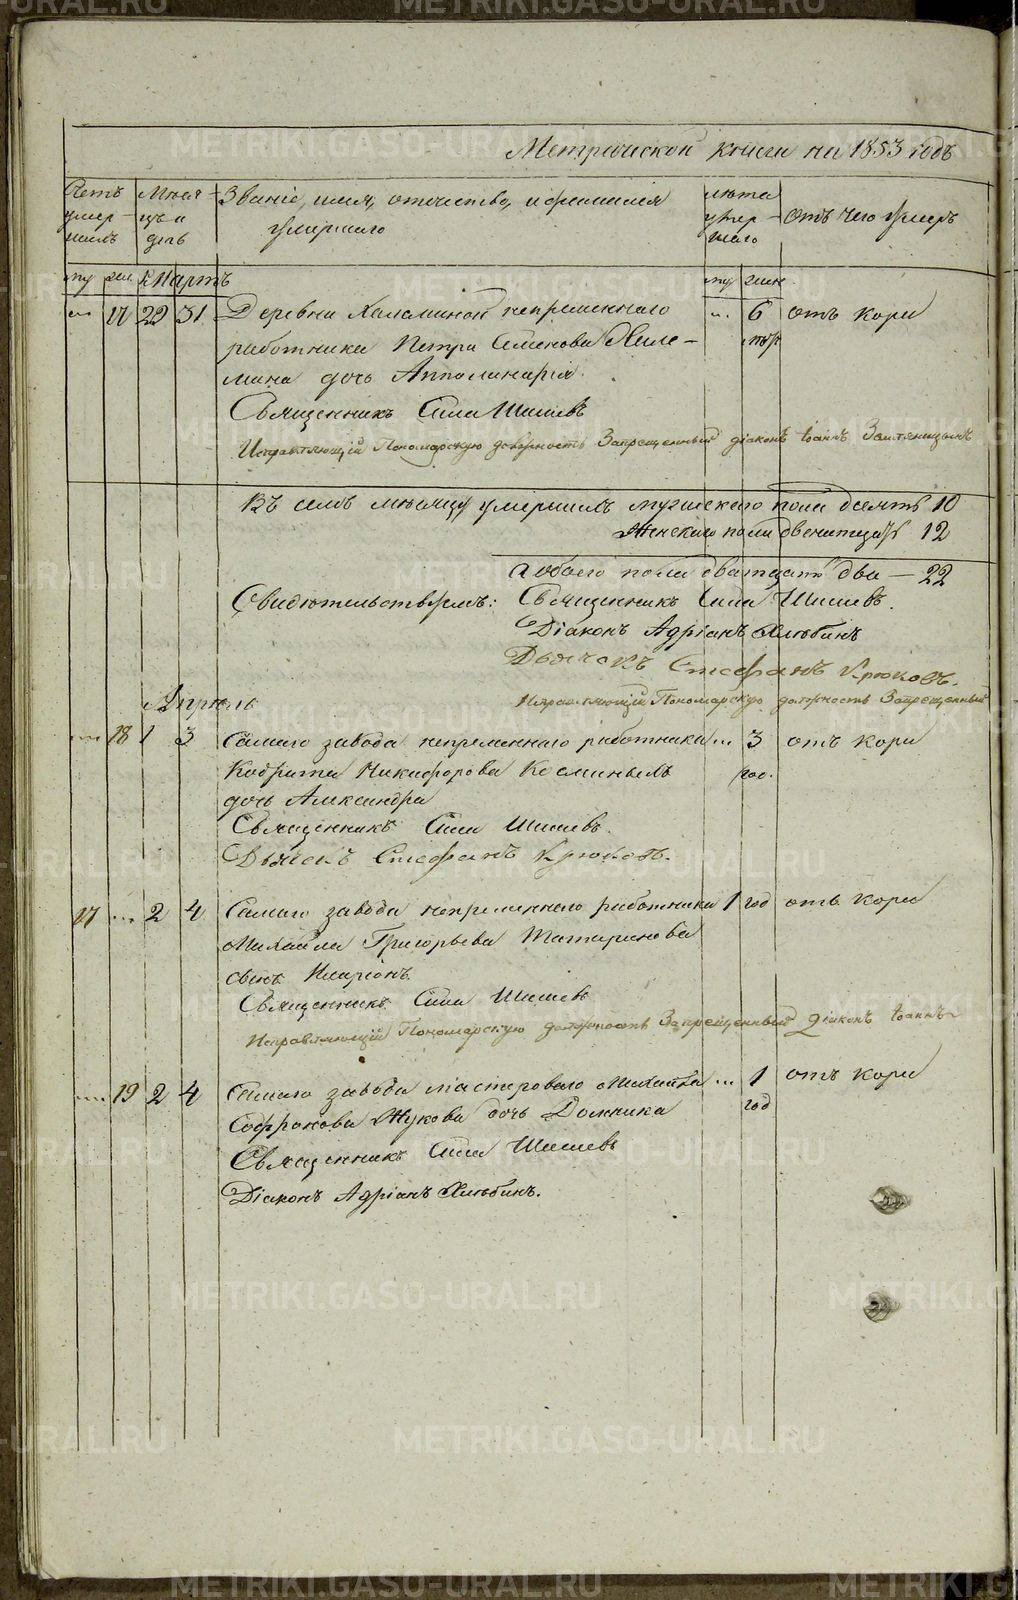 Метрической книги на 1853 годъ
Счетъ умер- шихъ
Меся- цъ и день
Званіе, имя, отчество, и фамилія умершаго
лета умер- шаго
Отъ чего умеръ
му жен Мартъ му жен
... 17 29 31 Деревни Халаминой непременнаго ... 6 отъ кори
работника Петра Семенова Хала- мѣр
мина дочь Апполинарія.
Священникъ Сила Шишевъ
Исправляющій Пономарскую должность Запрещенный діаконъ Іоаннъ
Въ семъ месяцу умершихъ мужескаго пола десять 10
Женскаго пола двенатцать 12
а обоего пола дватцать два — 22
Свидетельствуемъ: Священникъ Сила Шишевъ.
Діаконъ Адріанъ Хлюбинъ
Дьячокъ Стефанъ Крюковъ.
Исправляющій Пономарскую должность Запрещенный
Апрель
... 18 1 3 Самаго завода непременнаго работника ... 3 отъ кори
Кодрата Никифорова Косминыхъ год.
дочь Александра
Священникъ Сила Шишевъ.
Дьячекъ Стефанъ Крюковъ.
17 ... 2 4 Самаго завода непременнаго работника 1 год отъ кори
Михаила Григорьева Татаринова
сынъ Иларіонъ.
Священникъ Сила Шишевъ
Исправляющій Пономарскую должность Запрещенный Діаконъ Іоаннъ
... 19 2 4 Самаго завода мастероваго Михайла ... 1 отъ кори
Софронова Жукова дочь Домника год
Священникъ Сила Шишевъ
Діаконъ Адріанъ Хлюбинъ.
METRIKI.GASO-URAL.RU